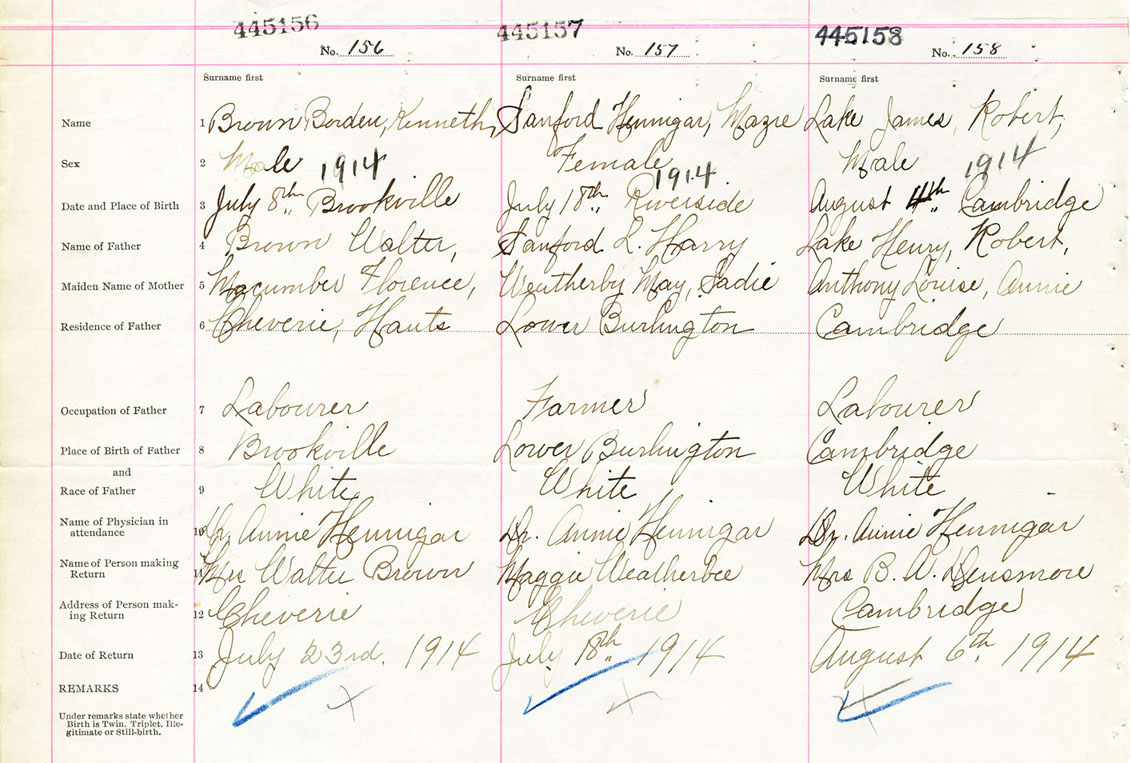 445156 445157 445158
No. 156 No. 157 No. 158
Surname first Surname first Surname first
Name 1 Brown Borden, Kenneth, Sanford Hennigar, Mazie Lake James, Robert,
Sex 2 Male Female Male
1914 1914 1914
Date and Place of Birth 3 July 8th Brookville July 18th Riverside August 4th Cambridge
Name of Father 4 Brown Walter, Sanford L. Harry Lake Henry, Robert,
Maiden Name of Mother 5 Macumber Florence, Weatherby May, Sadie Anthony Louise, Annie
Residence of Father 6 Cheverie, Hants Lower Burlington Cambridge
Occupation of Father 7 Labourer Farmer Labourer
Place of Birth of Father 8 Brookville Lower Burlington Cambridge
and
Race of Father 9 White White White
Name of Physician in
attendance 10 Dr. Annie Hennigar Dr. Annie Hennigar Dr. Annie Hennigar
Name of Person making
Return 11 Mrs Walter Brown Maggie Weatherbee Mrs B. W. Densmore
Address of Person mak-
ing Return 12 Cheverie Cheverie Cambridge
Date of Return 13 July 23rd. 1914 July 18th 1914 August 6th 1914
REMARKS 14
Under remarks state whether
Birth is Twin, Triplet, Ille-
gitimate or Still-birth.